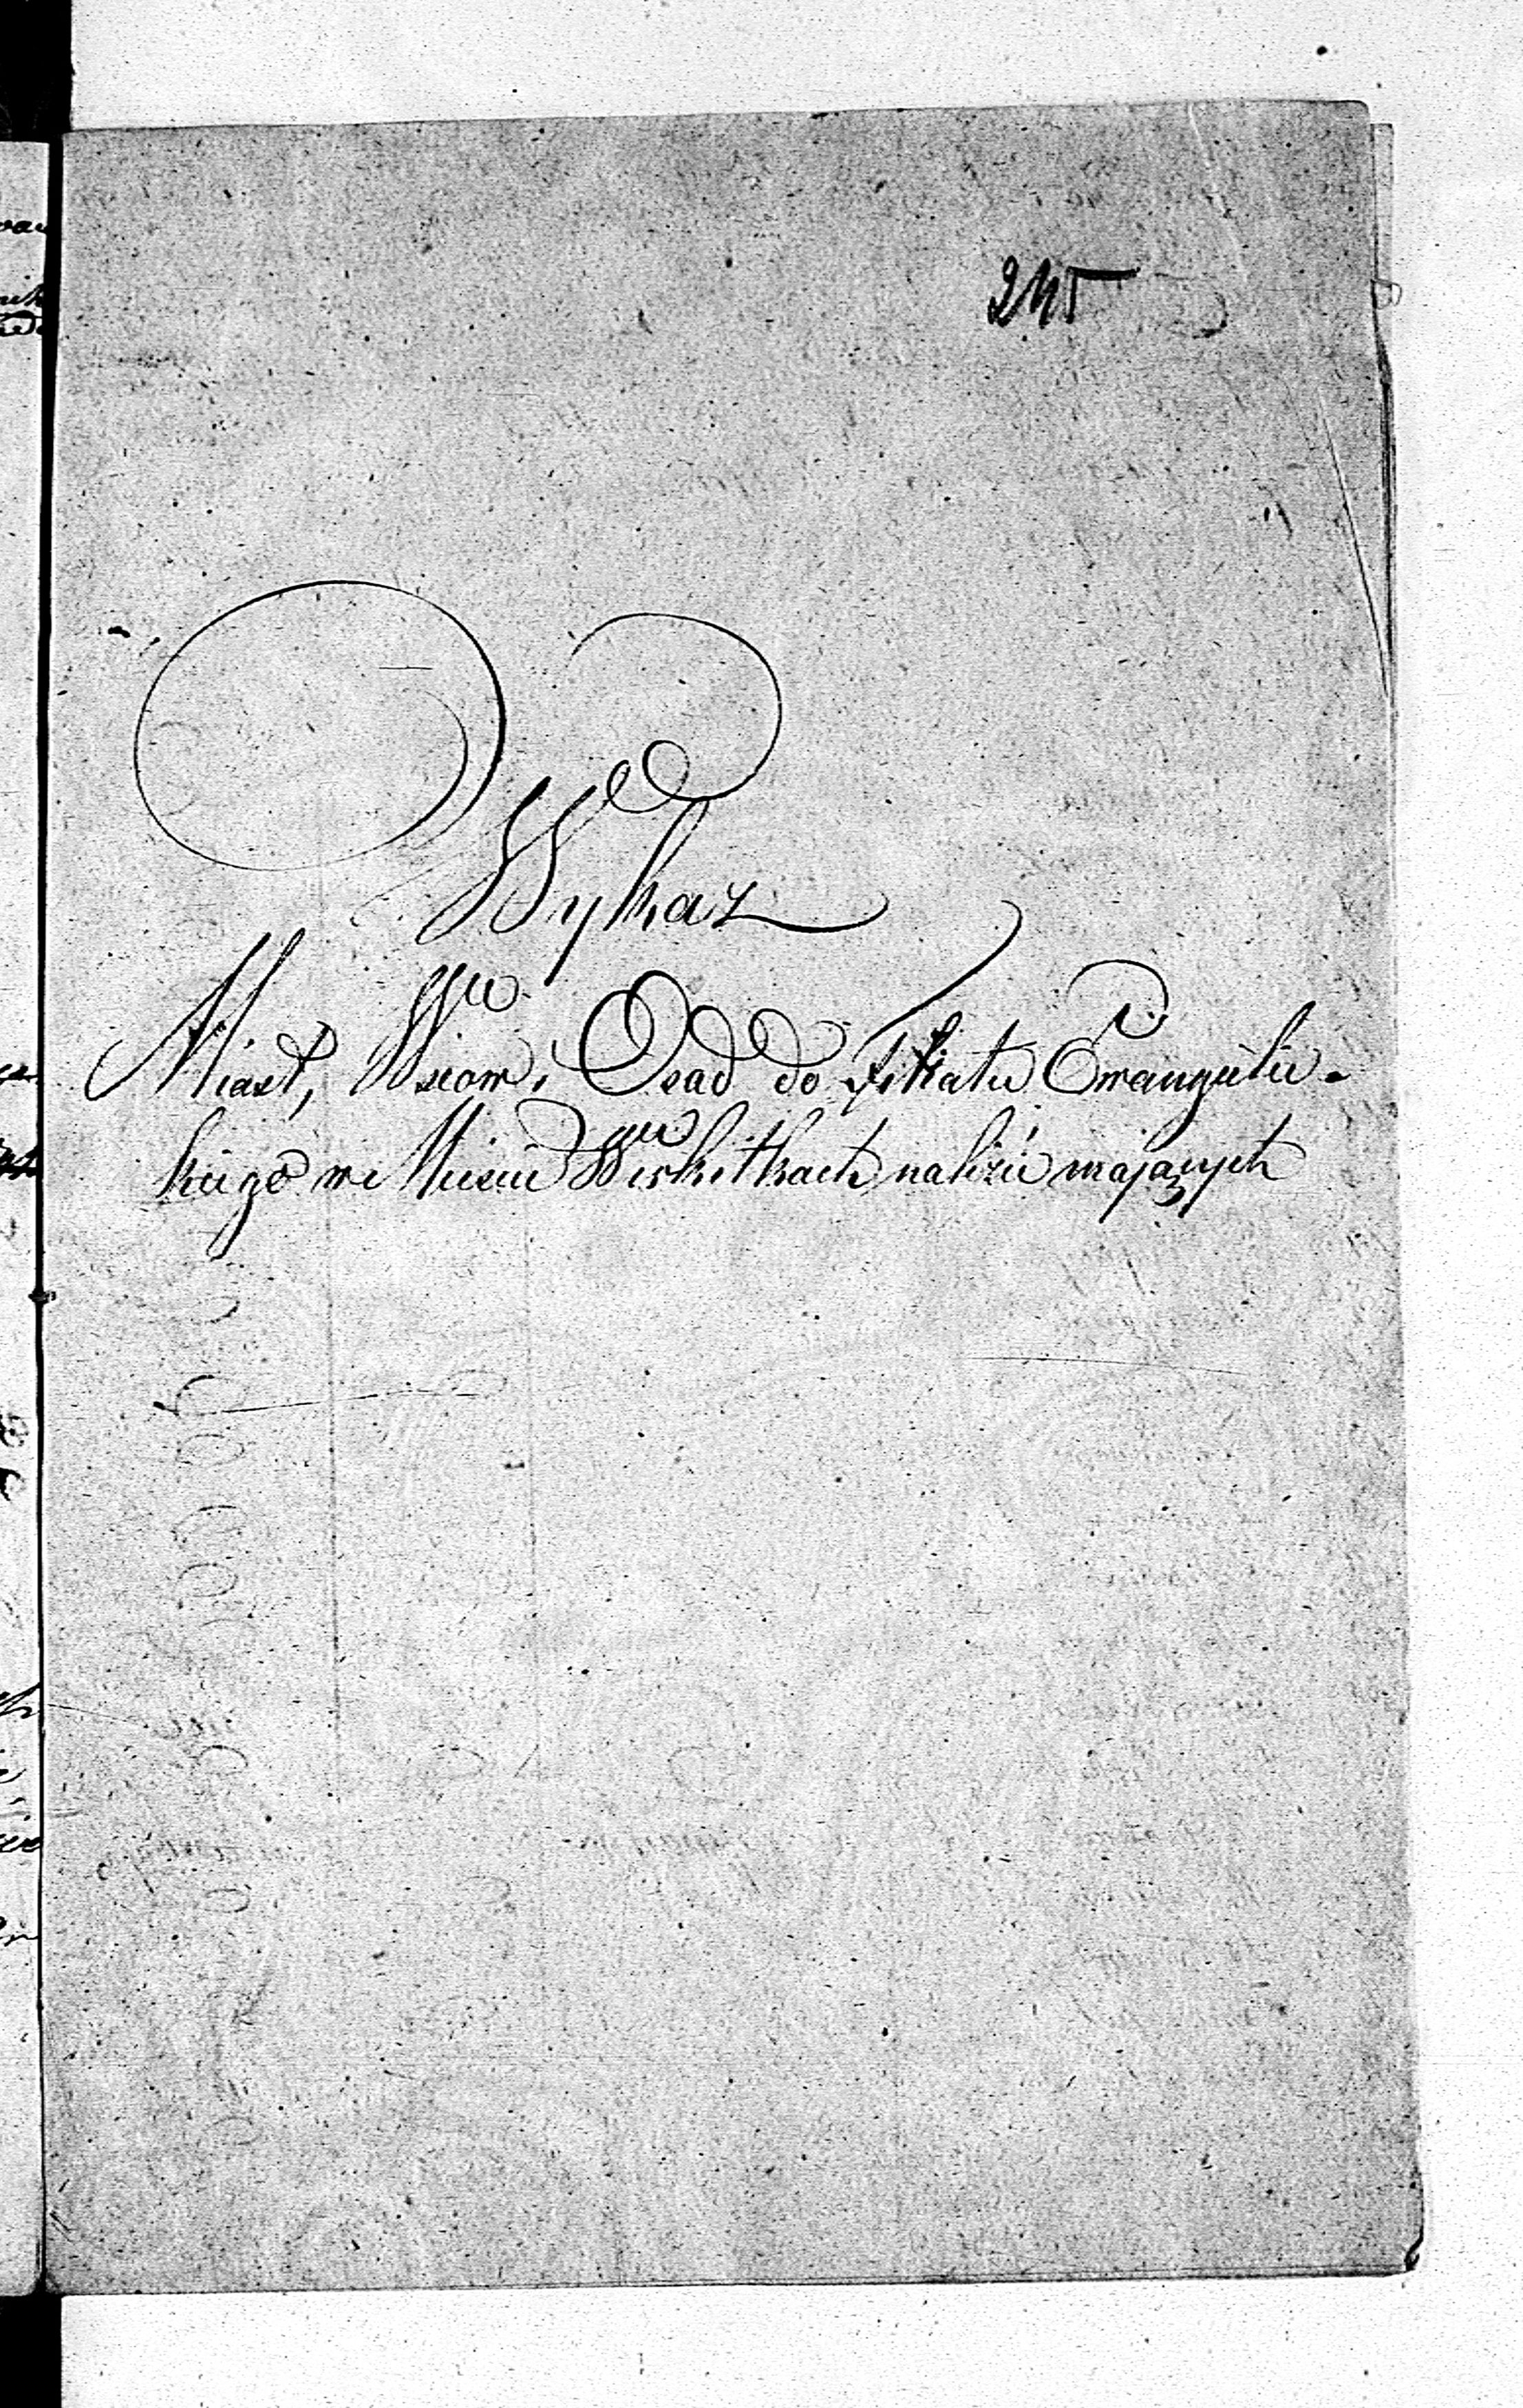 245
Wykaz
Miast, Wsiow, Osad do Filiatu Ewangelic-
kiego we Mieście Wiskitkach należeć mających